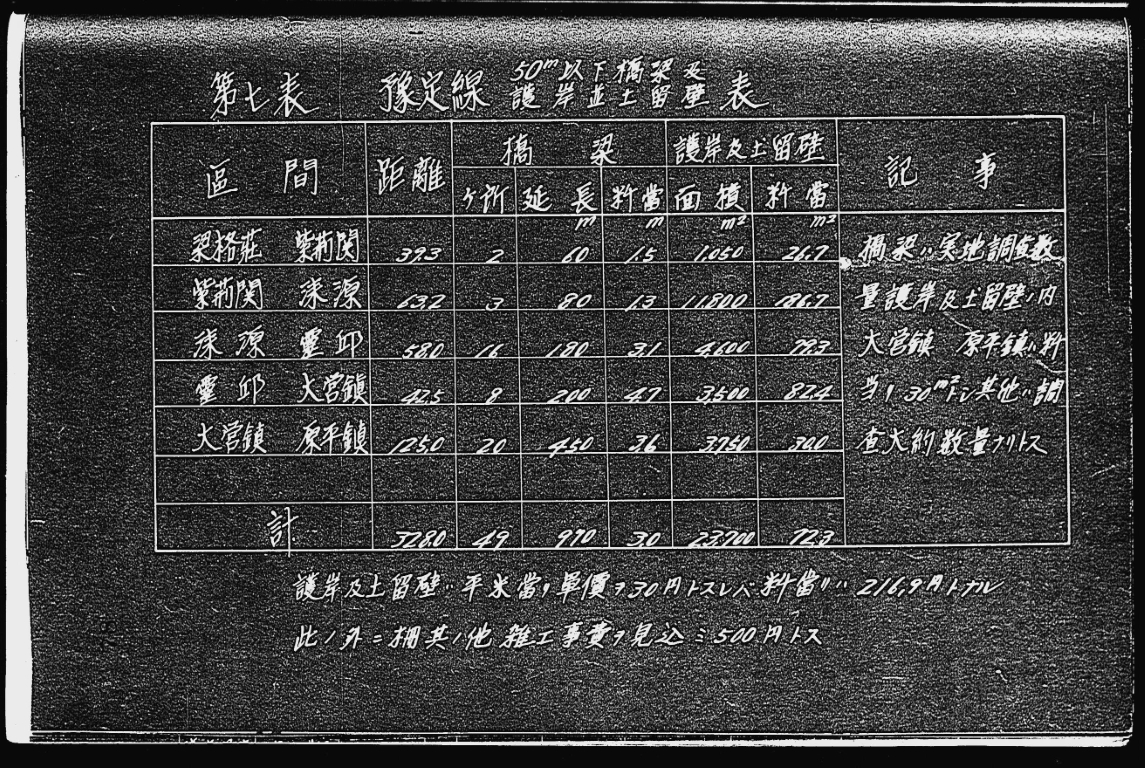 第七表 豫定線 50m以下橋梁及護岸並土留壁表
區間 距離 橋梁 護岸及土留壁 記事
ケ所 延長 粁當 面積 粁當
m m m² m²
梁格莊 紫荊関 39.3 2 60 1.5 1,050 26.7
紫荊関 淶源 63.2 3 80 1.3 11,800 186.7
淶源 靈邱 58.0 16 180 3.1 4,600 79.3
靈邱 大営鎮 42.5 8 200 4.7 3,500 82.4
大営鎮 原平鎮 125.0 20 450 3.6 3,750 30.0
計 328.0 49 970 3.0 23,700 72.3
橋梁ハ実地調査数
量護岸及土留壁ノ内
大営鎮 原平鎮ハ粁
当リ30m²トシ其他ハ調
査大約数量ナリトス
護岸及土留壁ハ平米當リ單價ヲ30円トスレバ粁當リハ216,9円トナル
此ノ外ニ柵其ノ他雑工事費ヲ見込ミ500円トス